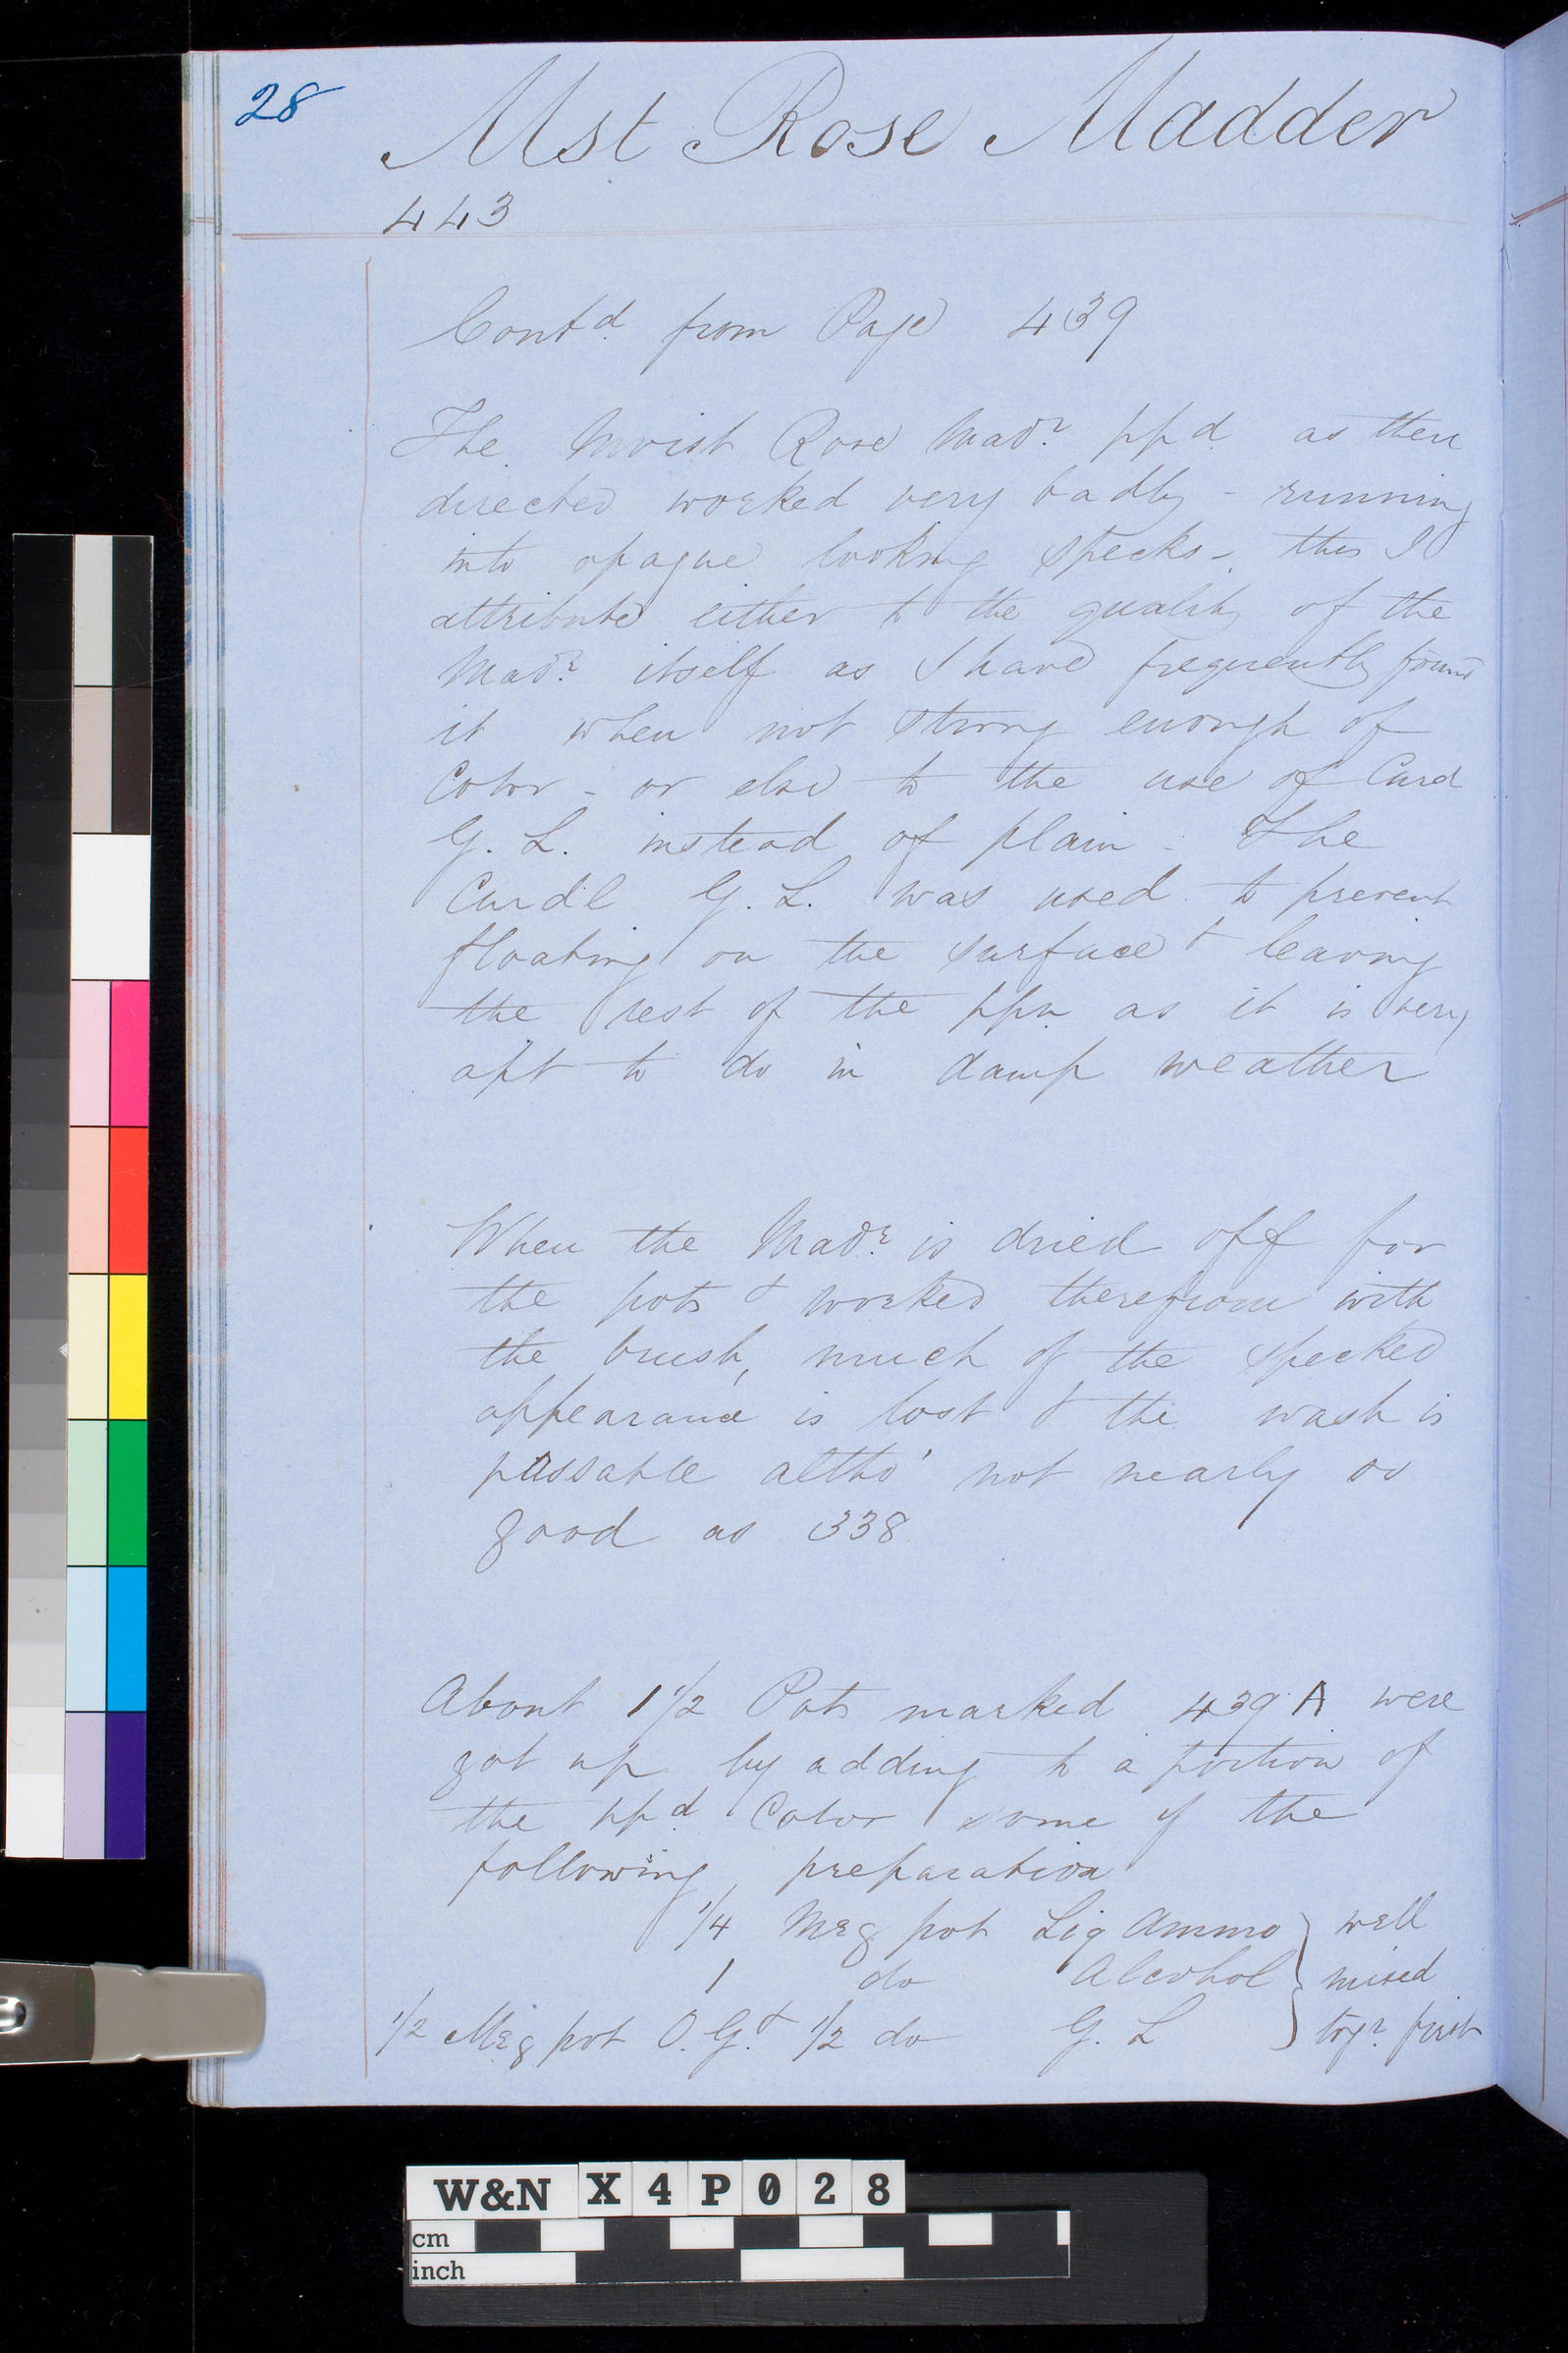 28
Mst Rose Madder
443
Contd. from Page 439
The Moist Rose Madr. ppd. as then
directed worked very badly - running
into opaque looking specks -, this I
attribute either to the quality of the
Madr. itself as I have frequently found
it when not strong enough of
Color - or else to the use of Curd
G. L. instead of plain - The
Curdl G. L. was used to prevent
floating on the surface & leaving
the rest of the ppn as it is very
apt to do in damp weather
When the Madr. is dried off for
the pots & worked therefrom with
the brush, much of the specked
appearance is lost & the wash is
passable altho' not nearly as
good as 338.
About 1 1/2 Pots marked 439 A were
got up by adding to a portion of
the ppd Color some of the
following preparation
1/4 Meg pot Liq Ammo } well
1 do Alcohol } mixed
1/2 Meg pot O. G. & 1/2 do G. L } togr. first
W&N X4P028
cm
inch